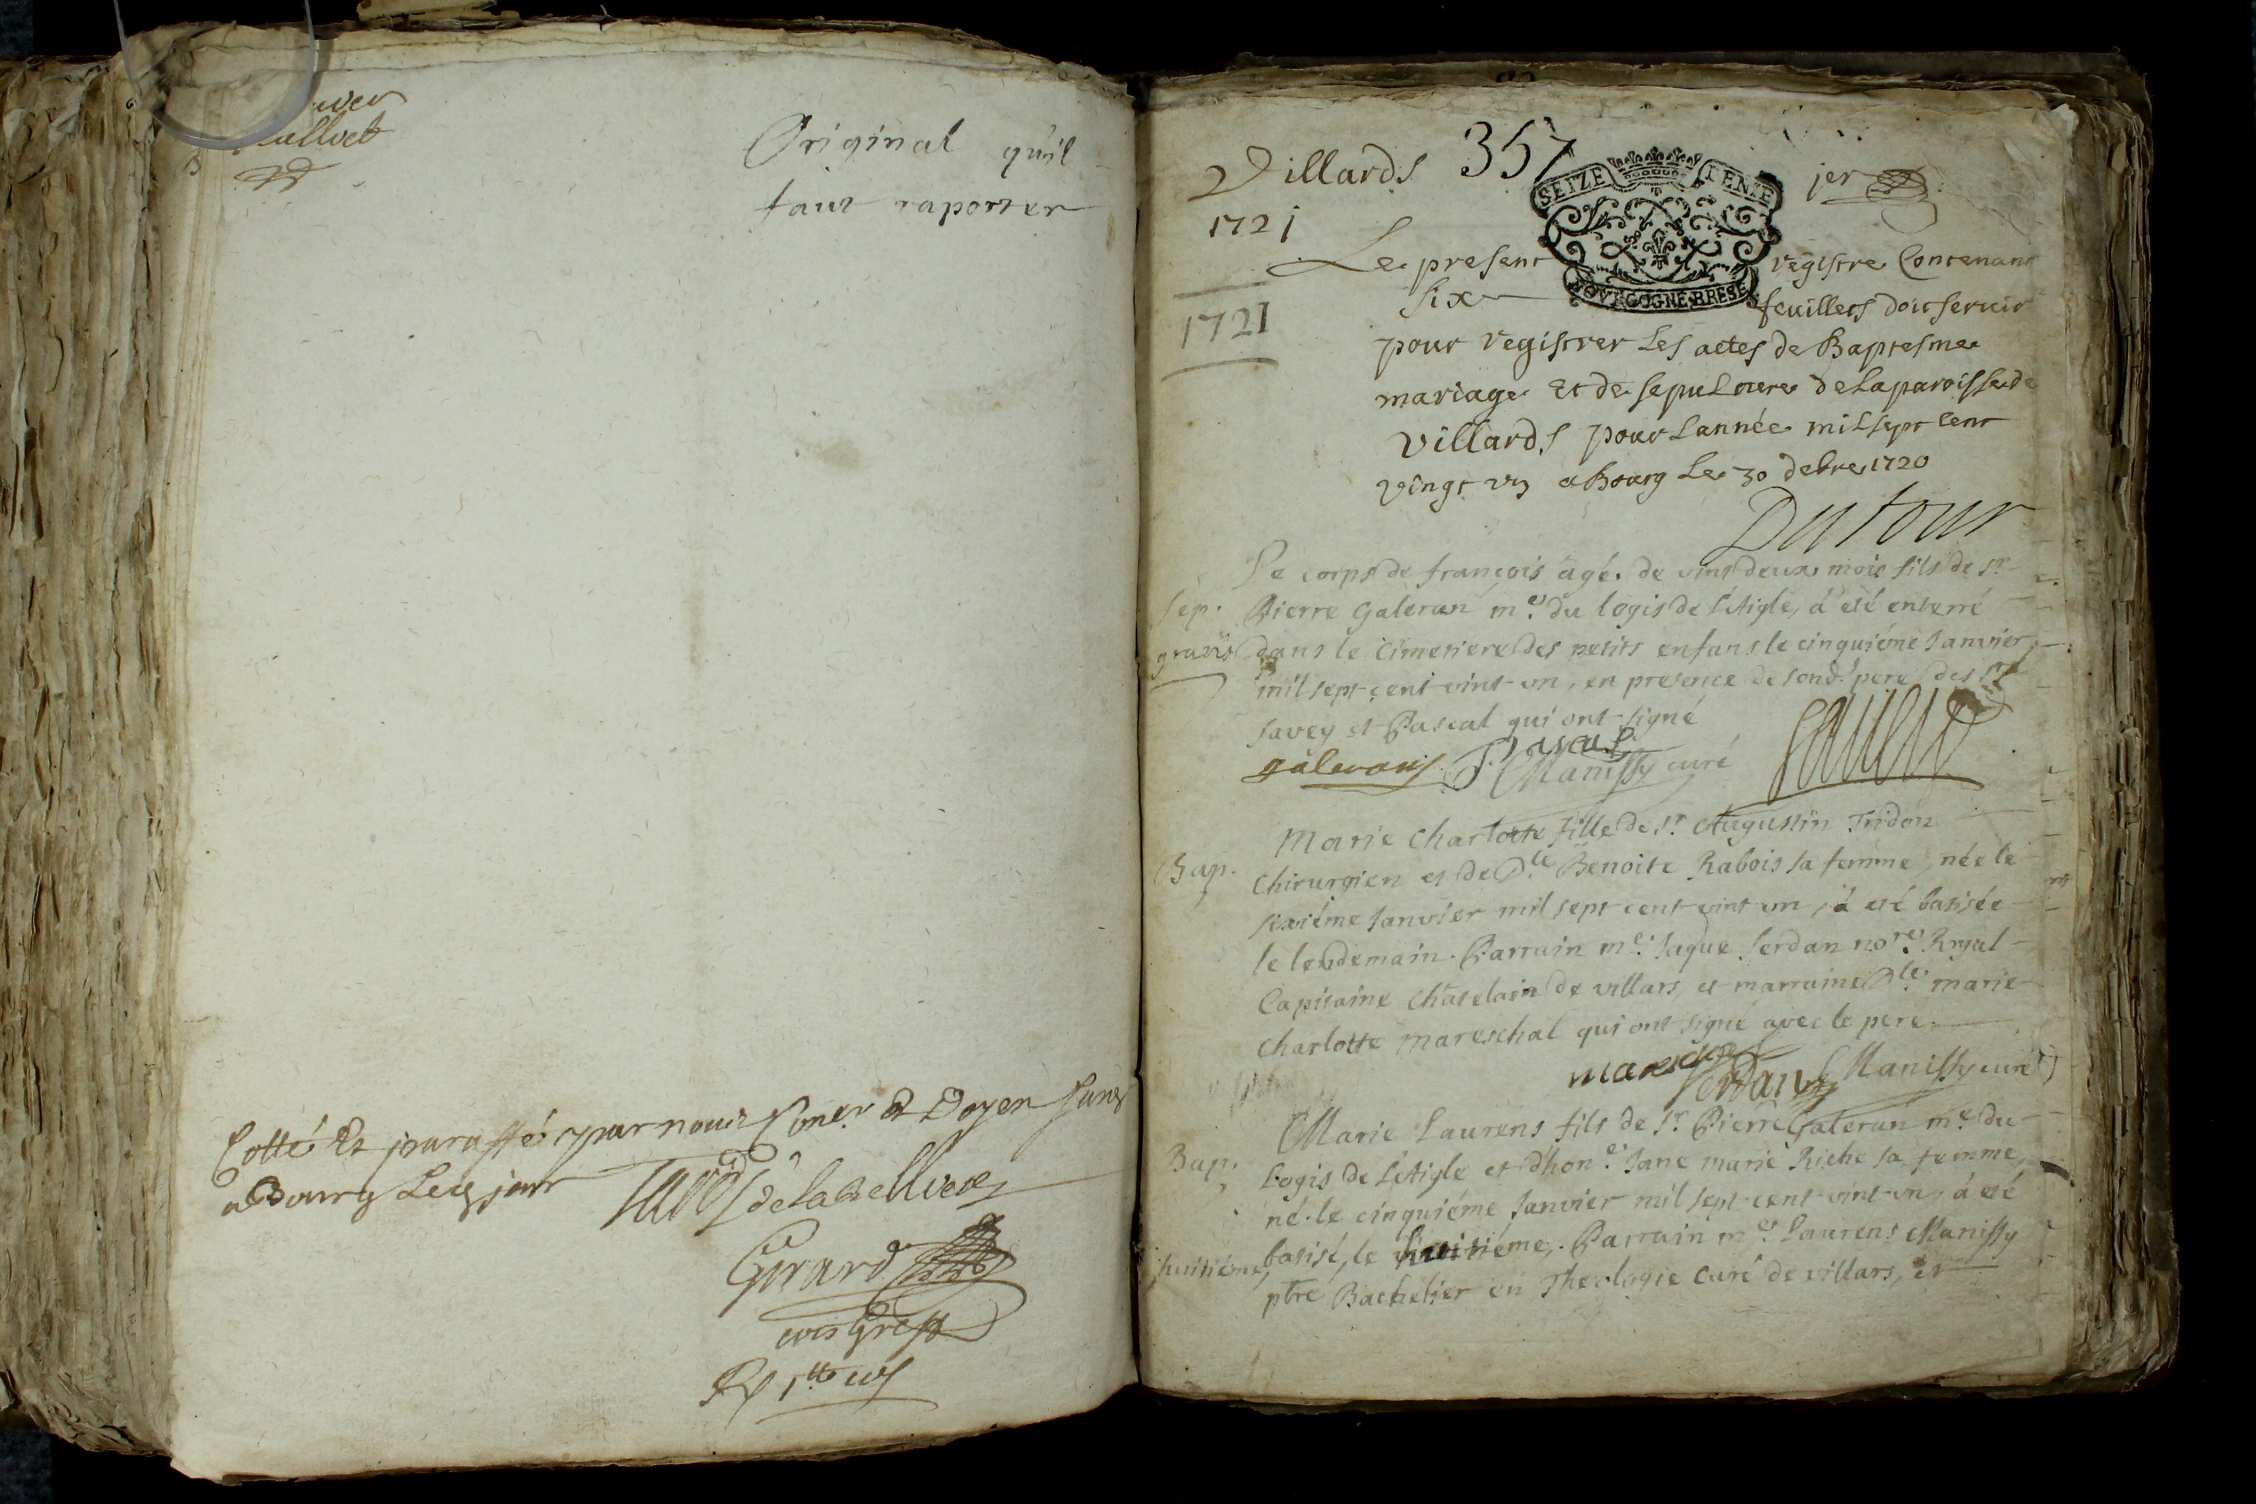 Original qu'il
faut raporter
Cotté Et paraffé par nous Doyen
a Bourg Led jour
Girard
Villards 357
1721
1721
SEIZE DENIE
BOVRGOGNE BRESE
jer
Le present registre Contenant
six feuillets doit servir
pour registrer Les actes de Baptesme
mariage Et de sepulture de La paroisse de
Villards pour L'année mil sept cent
vingt un a Bourg Le 30 debre 1720
Dufour
Sep.
gratis
Le corps de françois âgé de vint deux mois fils de sr
Pierre Galeran me du logis de l'Aigle, a eté enterré
dans le Cimetiere des petits enfans le cinquiéme Janvier
mil sept cent vint un, en presence de sond. pere des srs
Savey et Pascal qui ont signé
galerans Pascal
Manissy curé
Bap.
Marie Charlotte fille de sr Augustin Tridon
Chirurgien et de Dle Benoite Rabois sa femme, née le
sixiéme Janvier mil sept cent vint un, a eté batisée
le lendemain. Parrain me Jaque Serdan nore Royal
Capitaine Châtelain de villars, et marraine Dle marie
Charlotte mareschal qui ont signé avec le pere.
Serdan Manissy curé
Bap.
Marie Laurens fils de sr Pierre Galeran me du
Logis de l'Aigle et d'hone Jane marie Riche sa femme,
né le cinquiéme Janvier mil sept cent vint un, a eté
huitiéme, batisé, le huitiéme, Parrain me Laurens Manissy
ptre Bachelier en Theologie Curé de villars, et